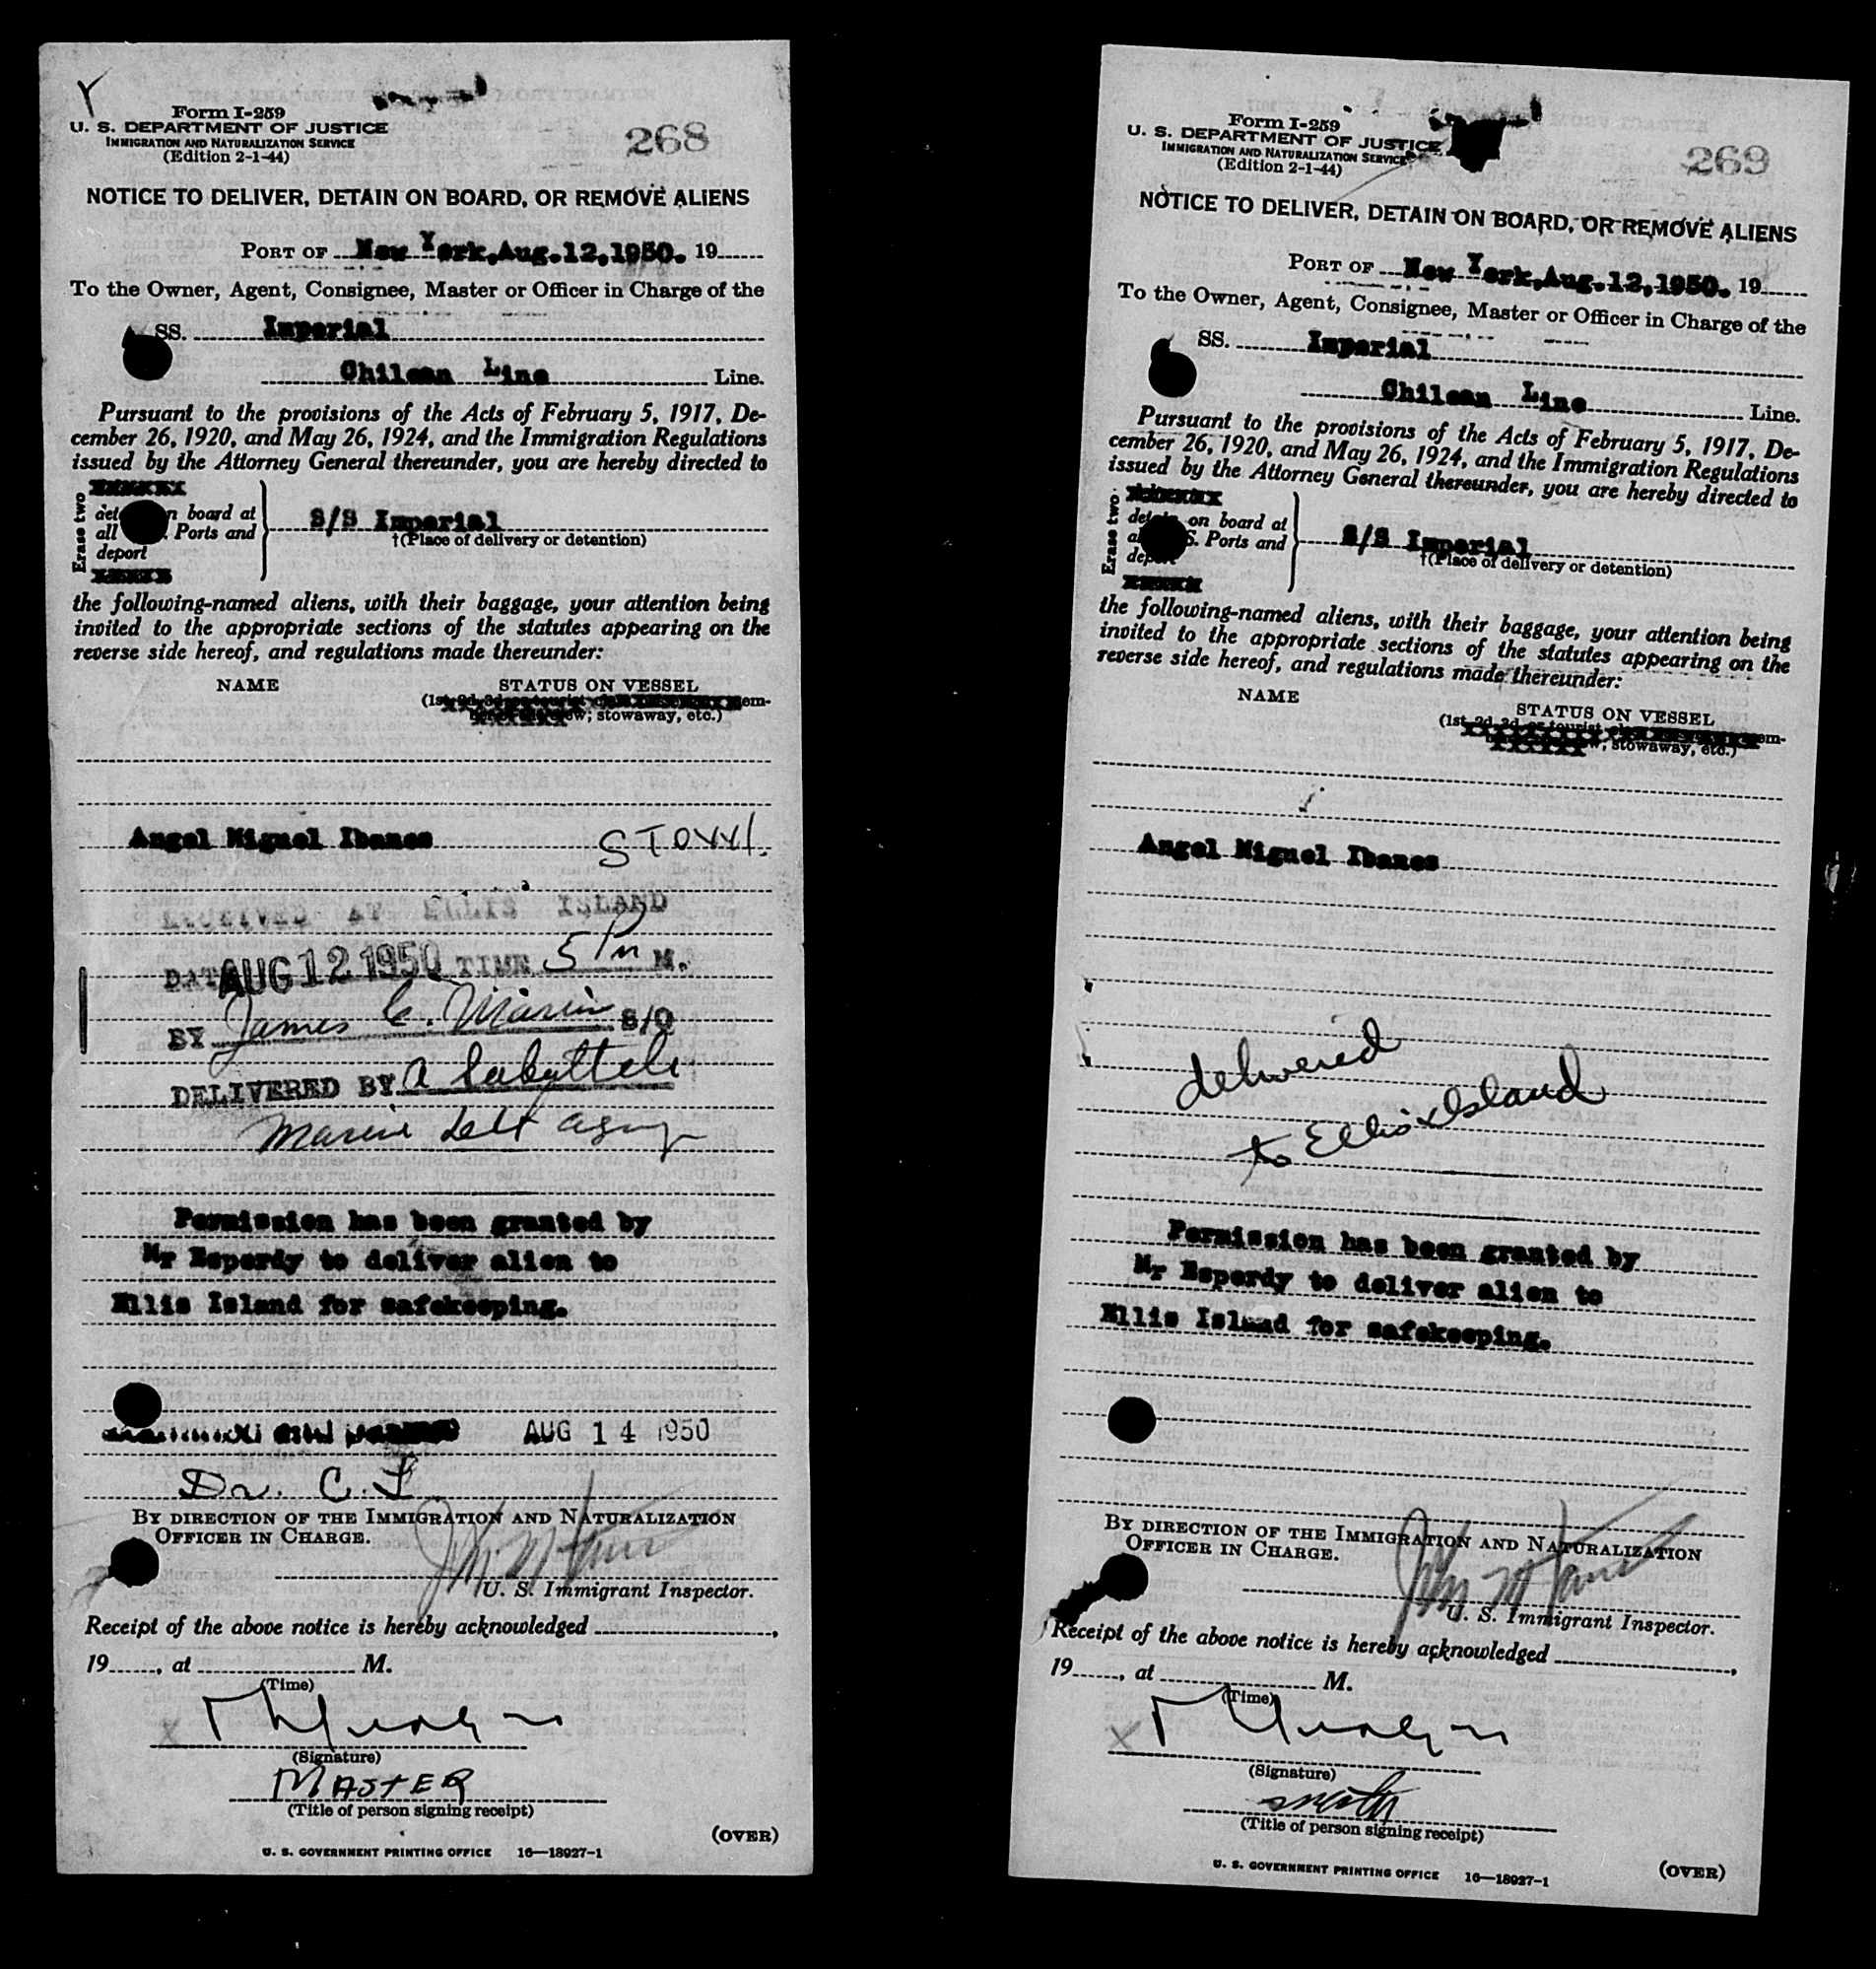 Form I-259
U. S. DEPARTMENT OF JUSTICE
IMMIGRATION AND NATURALIZATION SERVICE
(Edition 2-1-44)
268
NOTICE TO DELIVER, DETAIN ON BOARD, OR REMOVE ALIENS
PORT OF New York, Aug. 12, 1950. 19
To the Owner, Agent, Consignee, Master or Officer in Charge of the
SS. Imperial
Chilean Line Line.
Pursuant to the provisions of the Acts of February 5, 1917, De-
cember 26, 1920, and May 26, 1924, and the Immigration Regulations
issued by the Attorney General thereunder, you are hereby directed to
Erase two
board at
all Ports and
deport
S/S Imperial
†(Place of delivery or detention)
the following-named aliens, with their baggage, your attention being
invited to the appropriate sections of the statutes appearing on the
reverse side hereof, and regulations made thereunder:
NAME STATUS ON VESSEL
stowaway, etc.)
Angel Miguel Ibanes
RECEIVED AT ELLIS ISLAND
DATE AUG 12 1950 TIME 5 PM M.
BY James C. S/O
DELIVERED BY A
Permission has been granted by
Mr Esperdy to deliver alien to
Ellis Island for safekeeping.
AUG 14 1950
BY DIRECTION OF THE IMMIGRATION AND NATURALIZATION
OFFICER IN CHARGE.
U. S. Immigrant Inspector.
Receipt of the above notice is hereby acknowledged
19, at M.
(Time)
X
(Signature)
MASTER
(Title of person signing receipt)
(OVER)
U. S. GOVERNMENT PRINTING OFFICE 16—18927-1
Form I-259
U. S. DEPARTMENT OF JUSTICE
IMMIGRATION AND NATURALIZATION SERVICE
(Edition 2-1-44)
269
NOTICE TO DELIVER, DETAIN ON BOARD, OR REMOVE ALIENS
PORT OF New York, Aug. 12, 1950. 19
To the Owner, Agent, Consignee, Master or Officer in Charge of the
SS. Imperial
Chilean Line Line.
Pursuant to the provisions of the Acts of February 5, 1917, De-
cember 26, 1920, and May 26, 1924, and the Immigration Regulations
issued by the Attorney General thereunder, you are hereby directed to
Erase two
detain on board at
Ports and
S/S Imperial
†(Place of delivery or detention)
the following-named aliens, with their baggage, your attention being
invited to the appropriate sections of the statutes appearing on the
reverse side hereof, and regulations made thereunder:
NAME STATUS ON VESSEL
stowaway, etc.)
Angel Miguel Ibanes
delivered
to Ellis Island
Permission has been granted by
Mr Esperdy to deliver alien to
Ellis Island for safekeeping.
BY DIRECTION OF THE IMMIGRATION AND NATURALIZATION
OFFICER IN CHARGE.
U. S. Immigrant Inspector.
Receipt of the above notice is hereby acknowledged
19, at M.
(Time)
X
(Signature)
(Title of person signing receipt)
(OVER)
U. S. GOVERNMENT PRINTING OFFICE 16—18927-1